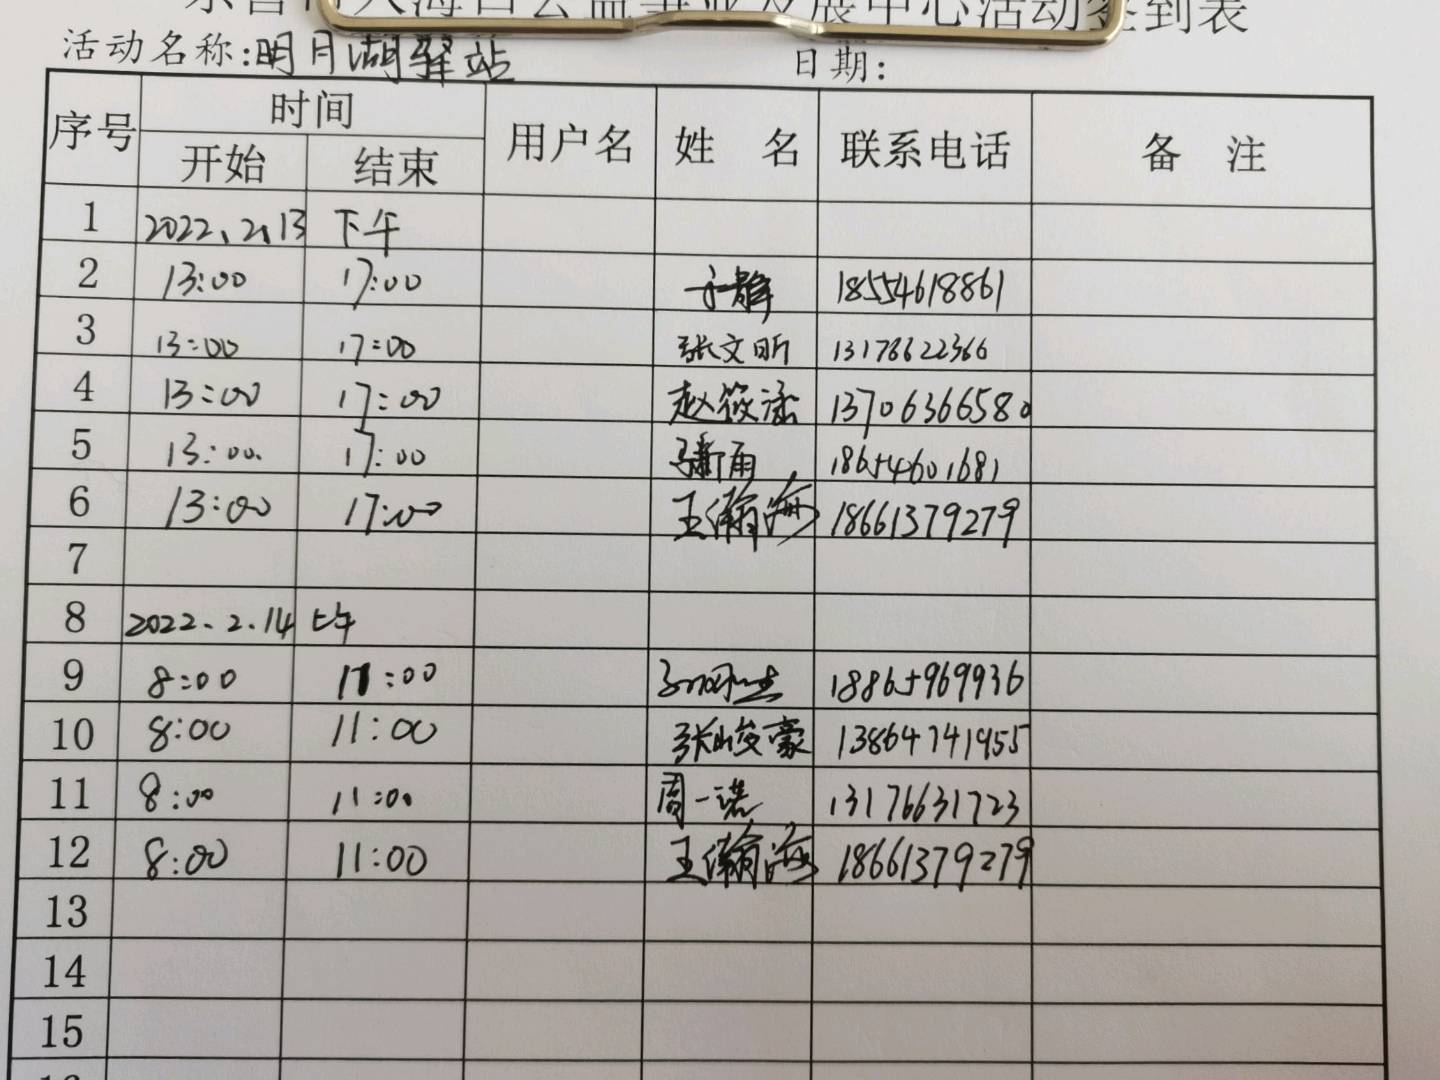 海百公益事业发展中心活动签到表
活动名称:明月湖驿站 日期:
序号 时间 用户名 姓 名 联系电话 备 注
开始 结束
1 2022.2.13 下午
2 13:00 17:00 18554618861
3 13:00 17:00 张文昕 13178622366
4 13:00 17:00 赵筱涵 13706366580
5 13:00. 17:00 雨 18654601681
6 13:00 17:00 王瀚海 18661379279
7
8 2022.2.14 上午
9 8:00 11:00 18865969936
10 8:00 11:00 张峻豪 13864741955
11 8:00 11:00 周一诺 13176631723
12 8:00 11:00 王瀚海 18661379279
13
14
15